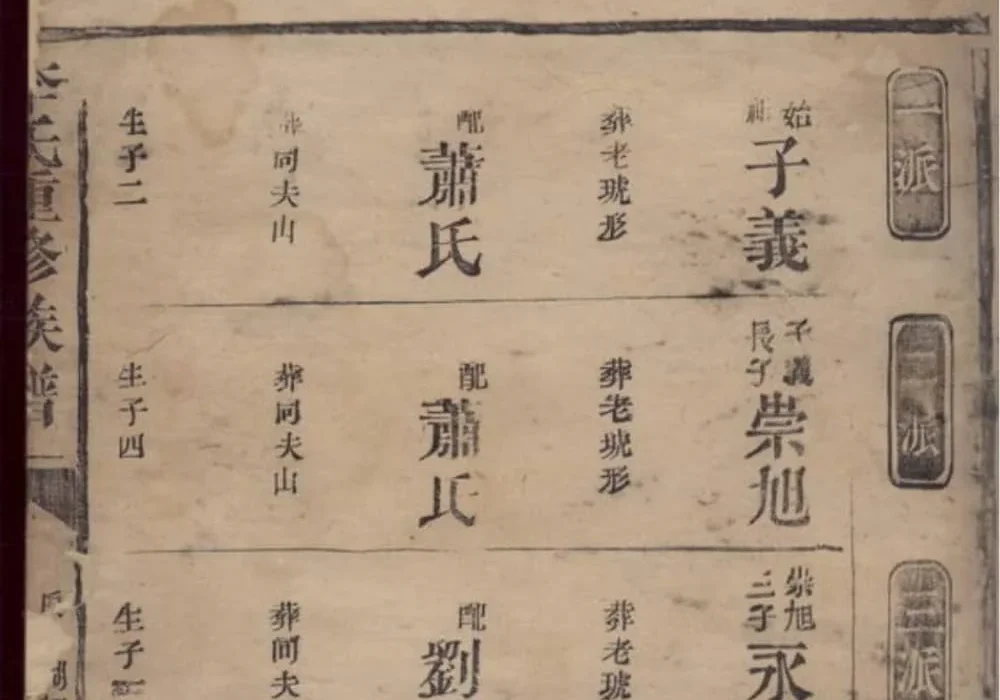 一派
始祖
子義
葬老琥形
配蕭氏
葬同夫山
生子二
二派
子義長子
崇旭
葬老琥形
配蕭氏
葬同夫山
生子四
三派
崇旭三子
永
葬老琥
配劉
葬同夫
生子
氏重修族譜